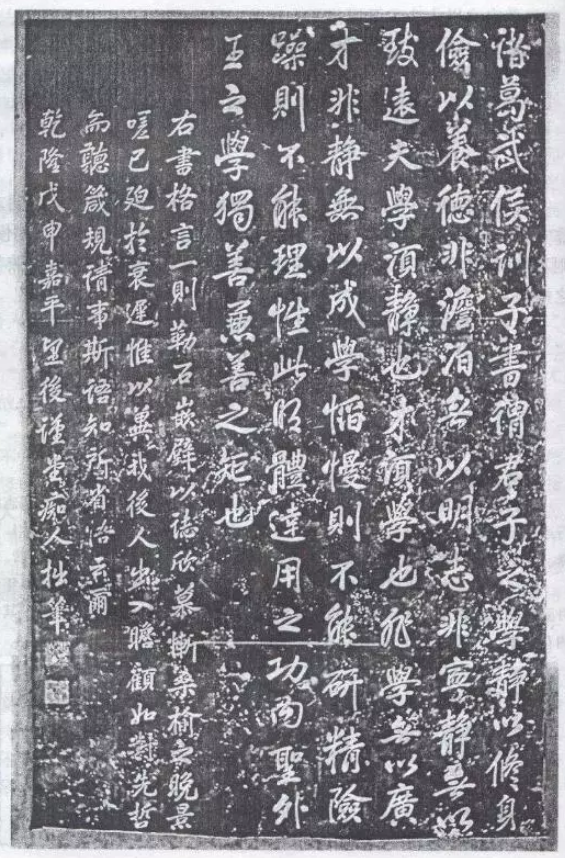 諸葛武侯訓子書謂君子之學靜以修身
儉以養德非澹泊無以明志非寧靜無以
致遠夫學須靜也才須學也非學無以廣
才非靜無以成學慆慢則不能研精險
躁則不能理性此明體達用之功內聖外
王之學獨善兼善之矩也
右書格言一則勒石嵌壁以誌欣慕慚桑榆之晚景
嗟已迫於衰遲惟以冀我後人出入瞻顧如對先哲
而聽箴規請事斯語知所省治云爾
乾隆戊申嘉平望後謹堂痴人拙筆